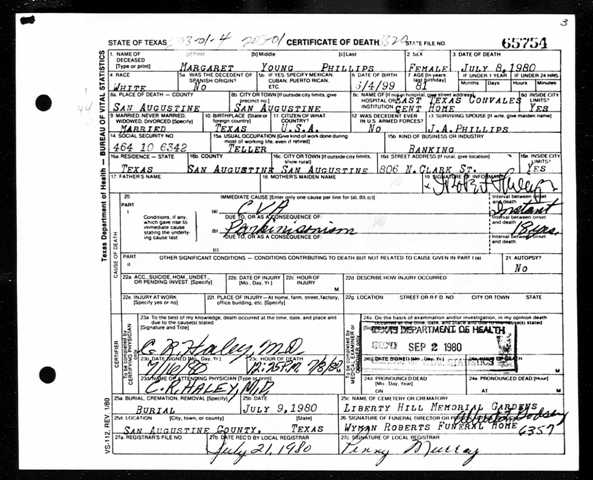 3
STATE OF TEXAS CERTIFICATE OF DEATH STATE FILE NO. 65754
1. NAME OF DECEASED (Type or print) (a)First (b)Middle (c)Last 2. SEX 3. DATE OF DEATH
MARGARET YOUNG PHILLIPS FEMALE JULY 8, 1980
4. RACE 5a. WAS THE DECEDENT OF SPANISH ORIGIN? 5b. IF YES, SPECIFY MEXICAN, CUBAN, PUERTO RICAN, ETC. 6. DATE OF BIRTH 7. AGE (In years last birthday) IF UNDER 1 YEAR IF UNDER 24 HRS.
WHITE NO 3/4/99 81
8a. PLACE OF DEATH — COUNTY 8b. CITY OR TOWN (If outside city limits, give precinct no.) 8c. NAME OF (If not in hospital, give street address) HOSPITAL OR 8d. INSIDE CITY LIMITS
SAN AUGUSTINE SAN AUGUSTINE EAST TEXAS CONVALESCENT HOME YES
9. MARRIED, NEVER MARRIED, WIDOWED, DIVORCED (Specify) 10. BIRTHPLACE (State or foreign country) 11. CITIZEN OF WHAT COUNTRY? 12. WAS DECEDENT EVER IN U.S. ARMED FORCES? 13. SURVIVING SPOUSE (If wife, give maiden name)
MARRIED TEXAS U.S.A. NO J.A.PHILLIPS
14. SOCIAL SECURITY NO. 15a. USUAL OCCUPATION (Give kind of work done during most of working life, even if retired) 15b. KIND OF BUSINESS OR INDUSTRY
464 10 6342 TELLER BANKING
16a. RESIDENCE STATE 16b. COUNTY 16c. CITY OR TOWN (If outside city limits, show rural) 16d. STREET ADDRESS (If rural, give location) 16e. INSIDE CITY LIMITS
TEXAS SAN AUGUSTINE SAN AUGUSTINE 806 N. CLARK ST. YES
17. FATHER'S NAME 18. MOTHER'S MAIDEN NAME 19. SIGNATURE OF INFORMANT
20. IMMEDIATE CAUSE (Enter only one cause per line for (a), (b), (c))
PART I (a) CVA Instant
Conditions, if any, which gave rise to immediate cause stating the underlying cause last
DUE TO, OR AS A CONSEQUENCE OF
(b) Parkinsonism 18 yrs.
DUE TO, OR AS A CONSEQUENCE OF
(c)
PART II OTHER SIGNIFICANT CONDITIONS — CONDITIONS CONTRIBUTING TO DEATH BUT NOT RELATED TO CAUSE GIVEN IN PART I (a) 21. AUTOPSY?
NO
22a. ACC., SUICIDE, HOM., UNDET., OR PENDING INVEST. (Specify) 22b. DATE OF INJURY (Mo., Day, Yr.) 22c. HOUR OF INJURY 22d. DESCRIBE HOW INJURY OCCURRED
22e. INJURY AT WORK (Specify yes or no) 22f. PLACE OF INJURY—At home, farm, street, factory, office building, etc. (Specify) 22g. LOCATION STREET OR R F D NO. CITY OR TOWN STATE
23a. To the best of my knowledge, death occurred at the time, date, and place and due to the cause(s) stated (Signature and Title)
24a. On the basis of examination and/or investigation, in my opinion death occurred at the time, date and place and due to
TEXAS DEPARTMENT OF HEALTH
C. R. Haley M.D.
SEP 2 1980
23b. DATE SIGNED (Mo., Day, Yr.) 23c. HOUR OF DEATH 24b. DATE SIGNED
STATISTICS
7/16/80
23d. NAME OF ATTENDING PHYSICIAN (Type or print) 24c. PRONOUNCED DEAD (Mo., Day, Year) 24e. PRONOUNCED DEAD (Hour)
C. R. HALEY, M.D. ON AT
25a. BURIAL, CREMATION, REMOVAL (Specify) 25b. DATE 25c. NAME OF CEMETERY OR CREMATORY
BURIAL JULY 9, 1980 LIBERTY HILL MEMORIAL GARDENS
25d. LOCATION (City, town, or county) (State) 26. SIGNATURE OF FUNERAL DIRECTOR
SAN AUGUSTINE COUNTY, TEXAS WYMAN ROBERTS FUNERAL HOME 6357
27a. REGISTRAR'S FILE NO. 27b. DATE REC'D BY LOCAL REGISTRAR 27c. SIGNATURE OF LOCAL REGISTRAR
July 21, 1980 Penny Murray
Texas Department of Health — BUREAU OF VITAL STATISTICS
CAUSE OF DEATH
CERTIFIER
VS-112, REV. 1/80